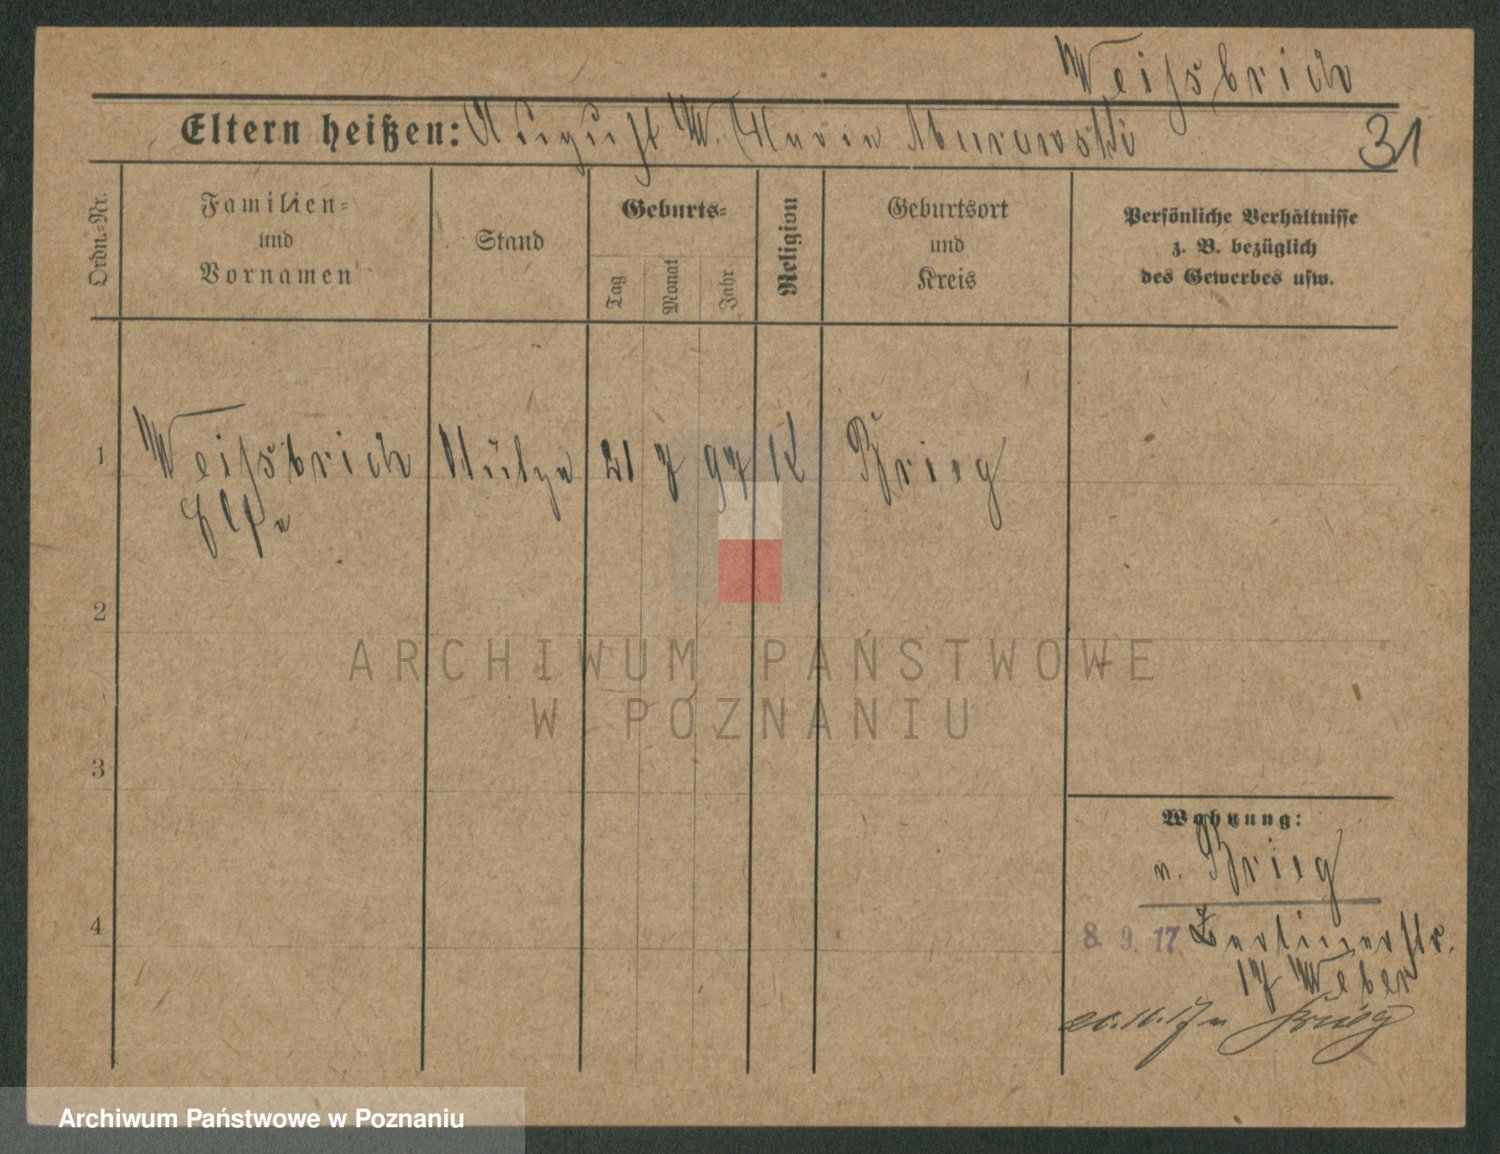 Weißbrich
Eltern heißen: August W. Marie Murawski
31
Ordn.-Nr.
Familien-
und
Vornamen
Stand
Geburts-
Tag
Monat
Jahr
Religion
Geburtsort
und
Kreis
Persönliche Verhältnisse
z. B. bezüglich
des Gewerbes usw.
1 Weißbrich 21 7 97 K Brieg
Else
2
3
4
Wohnung:
n. Brieg
8. 9. 17. Berlinerstr.
17 Weber
20.10.17 n Brieg
ARCHIWUM PAŃSTWOWE
W POZNANIU
Archiwum Państwowe w Poznaniu